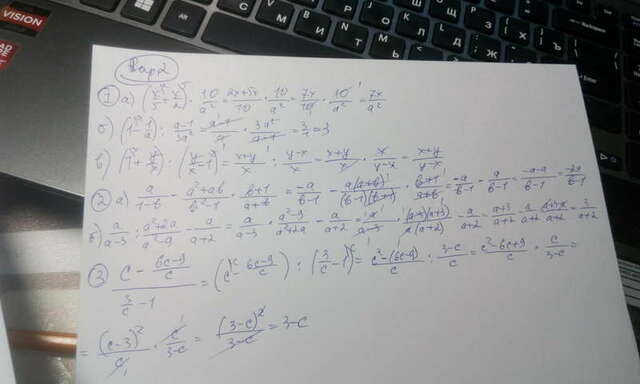 VISION
Вар 2
① а) (x/5 + x/2) · 10/a² = (2x+5x)/10 · 10/a² = 7x/10 · 10/a² = 7x/a²
б) (1 - 1/a) : (a-1)/3a² = (a-1)/a · 3a²/(a-1) = 3
в) (1 + y/x) : (y/x - 1) = (x+y)/x : (y-x)/x = (x+y)/x · x/(y-x) = (x+y)/(y-x)
② а) a/(1-b) - (a²+ab)/(b²-1) · (b+1)/(a+b) = -a/(b-1) - a(a+b)/(b-1)(b+1) · (b+1)/(a+b) = -a/(b-1) - a/(b-1) = (-a-a)/(b-1) = -2a/(b-1)
б) a/(a-3) : (a²+2a)/(a²-9) - a/(a+2) = a/(a-3) · (a²-9)/(a²+2a) - a/(a+2) = a/(a-3) · (a-3)(a+3)/a(a+2) - a/(a+2) = (a+3)/(a+2) - a/(a+2) = 3/(a+2)
③ (c - (6c-9)/c)/(3/c - 1) = (c - (6c-9)/c) : (3/c - 1) = (c²-(6c-9))/c : (3-c)/c = (c²-6c+9)/c · c/(3-c) =
= (c-3)²/c · c/(3-c) = (3-c)²/(3-c) = 3-c